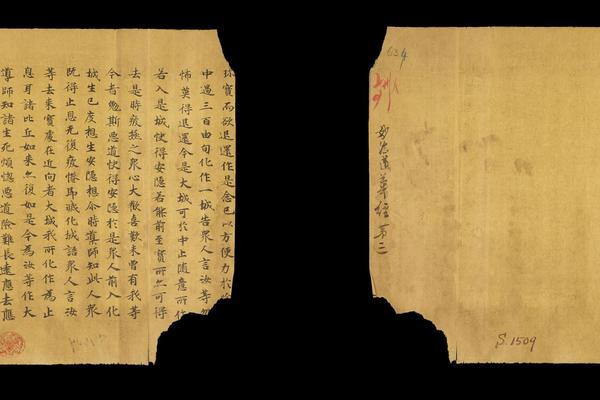 珎寶而欲退還作是念已以方便力於
中過三百由旬化作一城告眾人言汝等勿
怖莫得退還今是大城可於中止隨意所作
若入是城快得安隱若能前至寶所亦可得
去是時疲極之眾心大歡喜歎未曾有我等
今者免斯惡道快得安隱於是眾人前入化
城生已度想生安隱想尒時導師知此人眾
既得止息无復疲惓即滅化城語眾人言汝
等去來寶處在近向者大城我所化作為止
息耳諸比丘如來亦復如是今為汝等作大
導師知諸生死煩惱惡道險難長遠應去應
634
妙法蓮華經 第三
S.1509